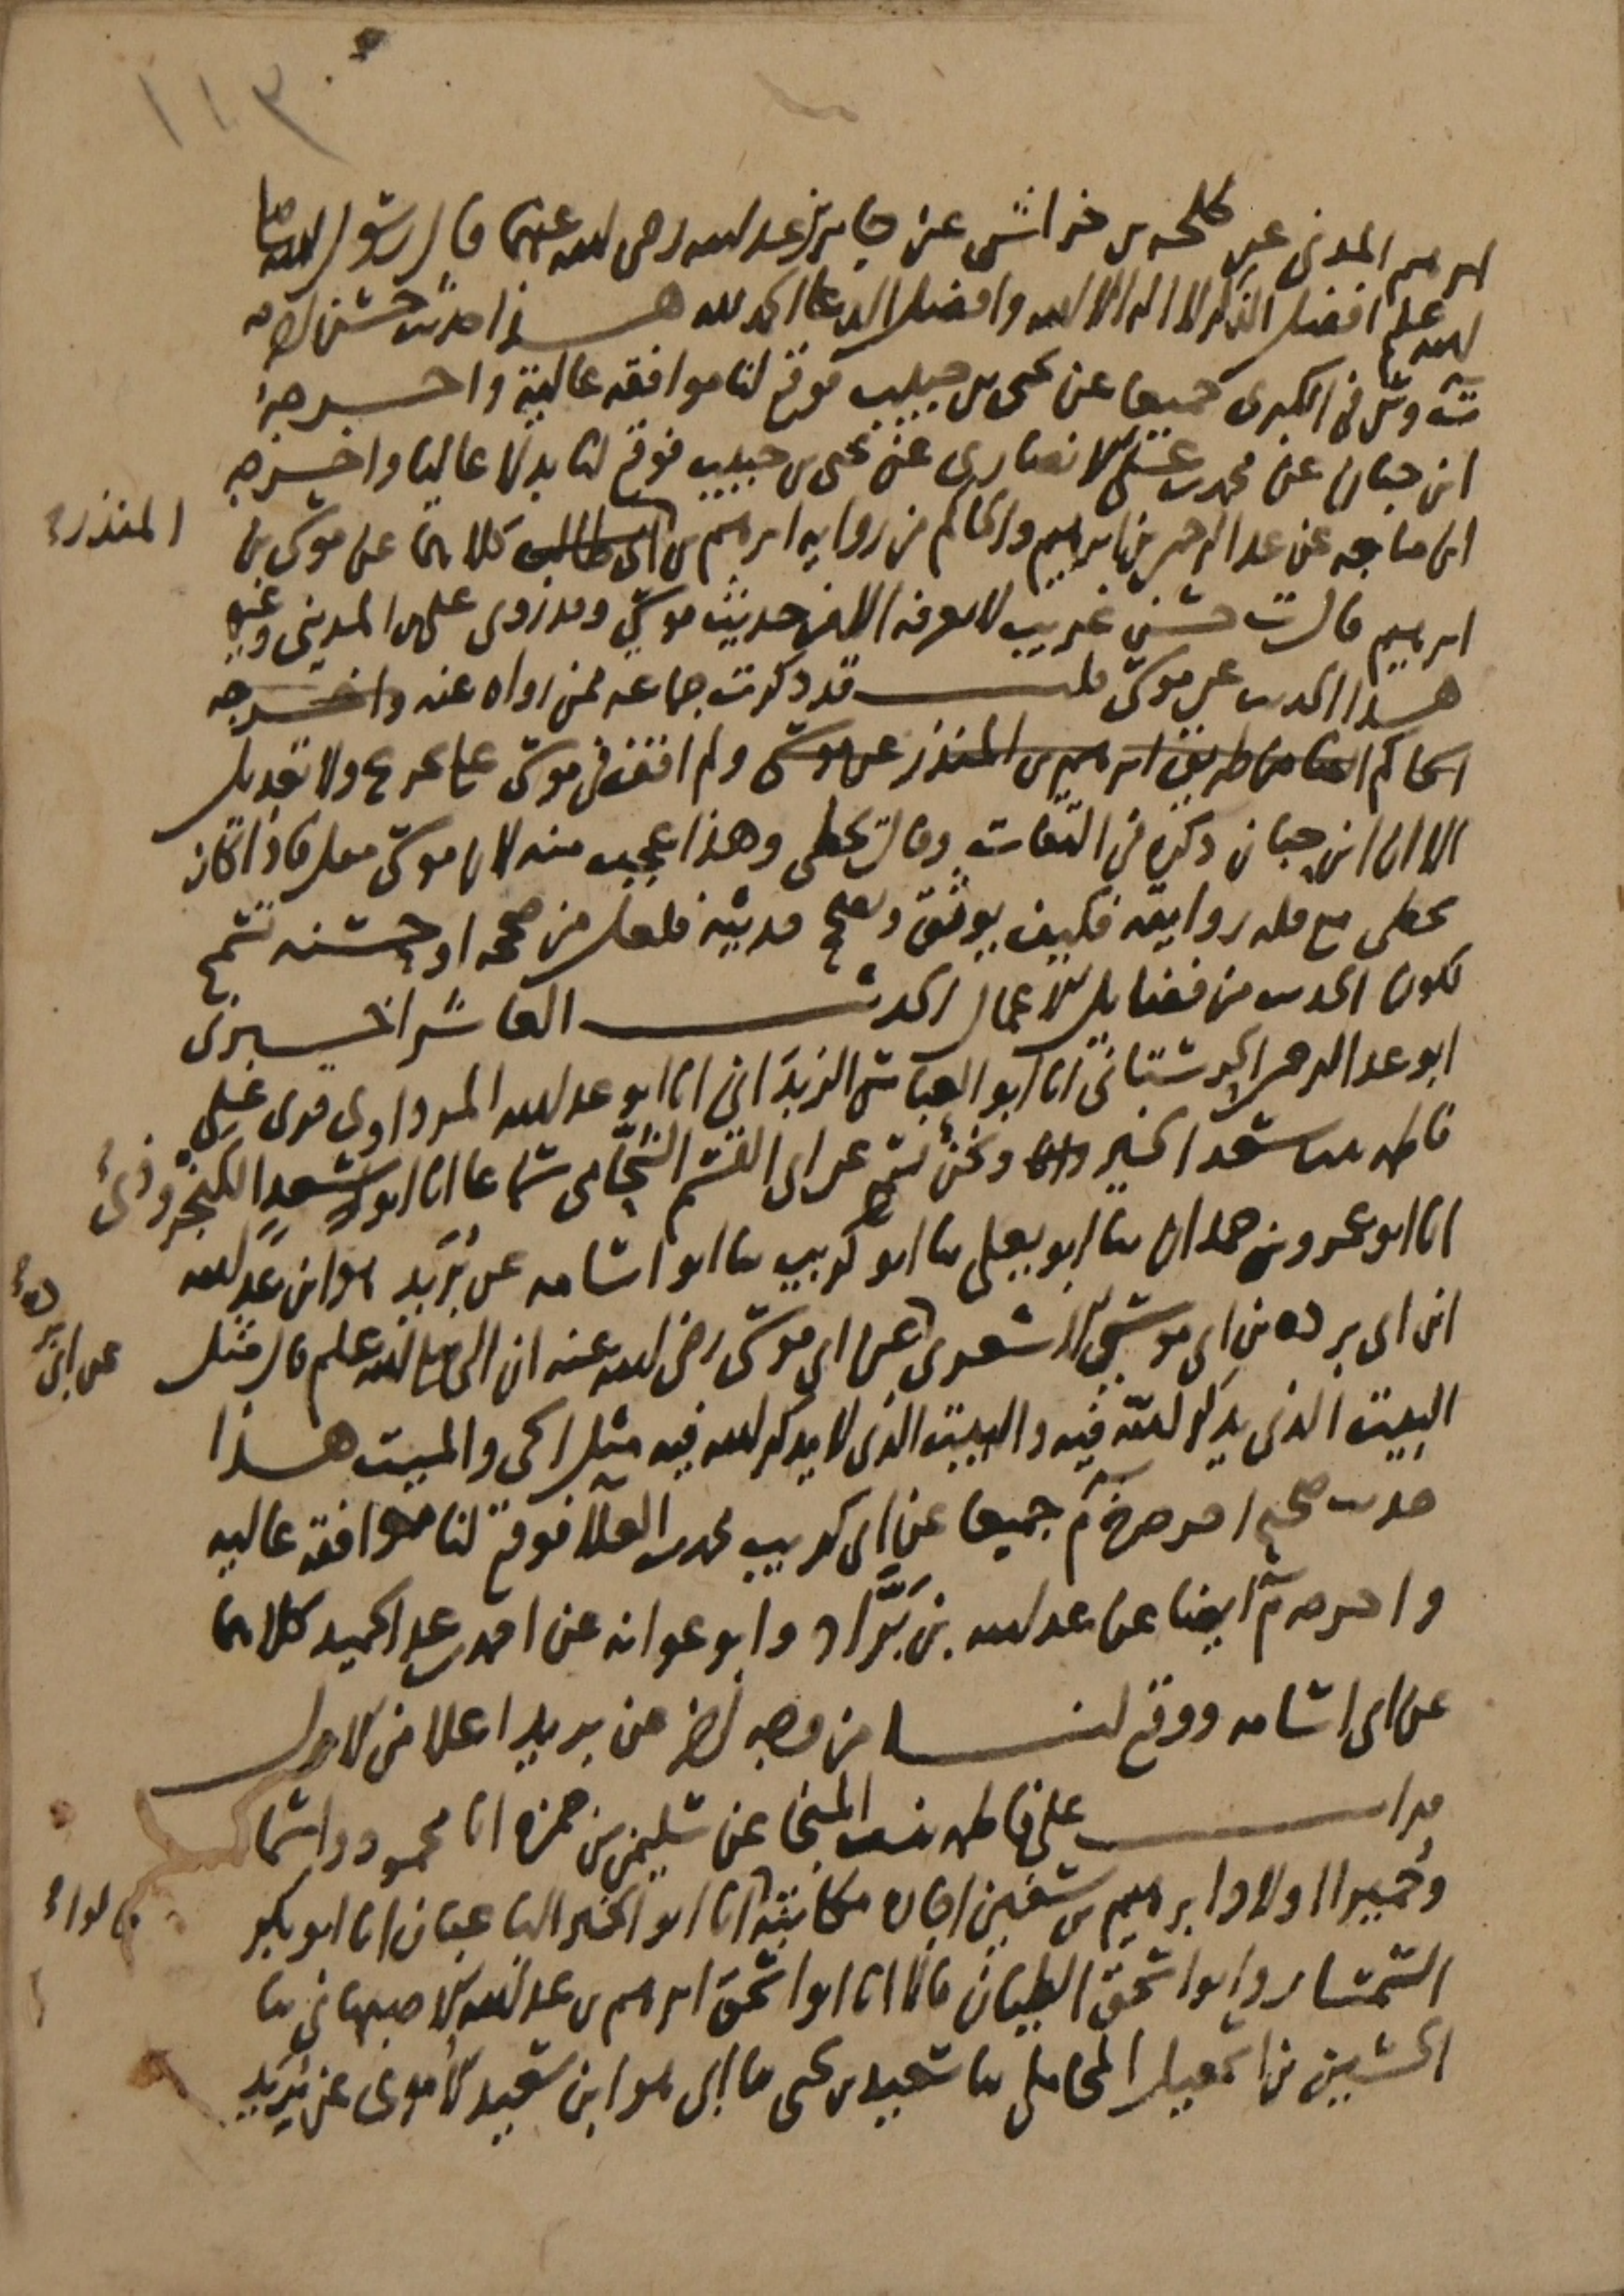 ١١٣
ابرهيم المدنى عن طلحه بن خراش عن جابر بن عبد الله رضى الله عنهما قال رسول الله صلى
الله عليه وسلم افضل الذكر لا اله الا الله وافضل الدعا الحمد لله هذا حديث حسن اخرجه
ت وس فى الكبرى جميعا عن يحيى بن حبيب فوقع لنا موافقه عالية واخرجه
ابن حبان عن محمد بن على الانصارى عن يحيى بن حبيب فوقع لنا بدلا عاليا واخرجه
ابن ماجه عن عبد الرحمن بن ابرهيم والحاكم من روايه ابرهيم بن ابى طالب كلاهما عن موسى بن
المنذر
ابرهيم قال ت حسن غريب لا نعرفه الا من حديث موسى وقد روى على بن المدينى وغيره
هذا الحديث عن موسى قلت قد ذكرت جماعه ممن رواه عنه واخرجه
الحاكم ايضا من طريق ابرهيم بن المنذر عن موسى ولم اقف فى موسى على تجريح ولا تعديل
الا ان ابن حبان ذكره فى الثقات وقال يخطى وهذا عجيب منه لان موسى مقل فاذا كان
يخطى مع قله روايته فكيف يوثق ويصحح حديثه فلعل من صححه او حسنه تسمح
لكون الحديث من فضايل الاعمال الحديث العاشر اخبرنى
ابو عبد الرحمن الجرستانى انا ابو العباس الزبدانى انا ابو عبد الله المرداوى قرى على
فاطمه بنت سعد الخير ونحن نسمع عن ابى القسم الشحامى سماعا انا ابو سعد الكنجروذى
انا ابو عمرو بن حمدان ثنا ابو يعلى ثنا ابو كريب ثنا ابو اسامه عن بريد هو ابن عبد الله
ابن ابى برده بن ابى موسى الاشعرى عن ابى موسى رضى الله عنه ان النبى صلى الله عليه وسلم قال مثل
عن ابى برده
البيت الذى يذكر الله فيه والبيت الذى لا يذكر الله فيه مثل الحى والميت هذا
حديث صحيح اخرجه خ م جميعا عن ابى كريب محمد بن العلا فوقع لنا موافقه عاليه
واخرجه م ايضا عن عبد الله بن براد وابو عوانه عن احمد بن عبد الحميد كلاهما
عن ابى اسامه ووقع لنا من وجه اخر عن بريد اعلا من الاول
قرات على فاطمه بنت المنجا عن سليمن بن حمزه انا محمود واسما
وحميرا اولاد ابرهيم بن سفين اجازه مكاتبة انا ابو الخير الباغبان انا ابو بكر
السمسار وابو اسحق الطيان قالا انا ابو اسحق ابرهيم بن عبد الله الاصبهانى ثنا
الحسين بن اسمعيل المحاملى ثنا سعيد بن يحيى ثنا ابى هو ابن سعيد الاموى عن بريد